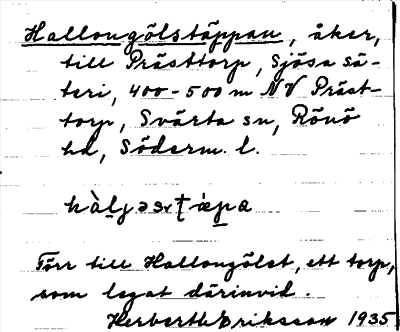 Hallongölstäppan, åker,
till Prästtorp, Sjösa sä-
teri, 400-500 m NV Präst-
torp, Svärta sn, Rönö
hd, Söderm. l.
Förr till Hallongölet, ett torp,
som legat därinvid.
Herbert Eriksson 1935